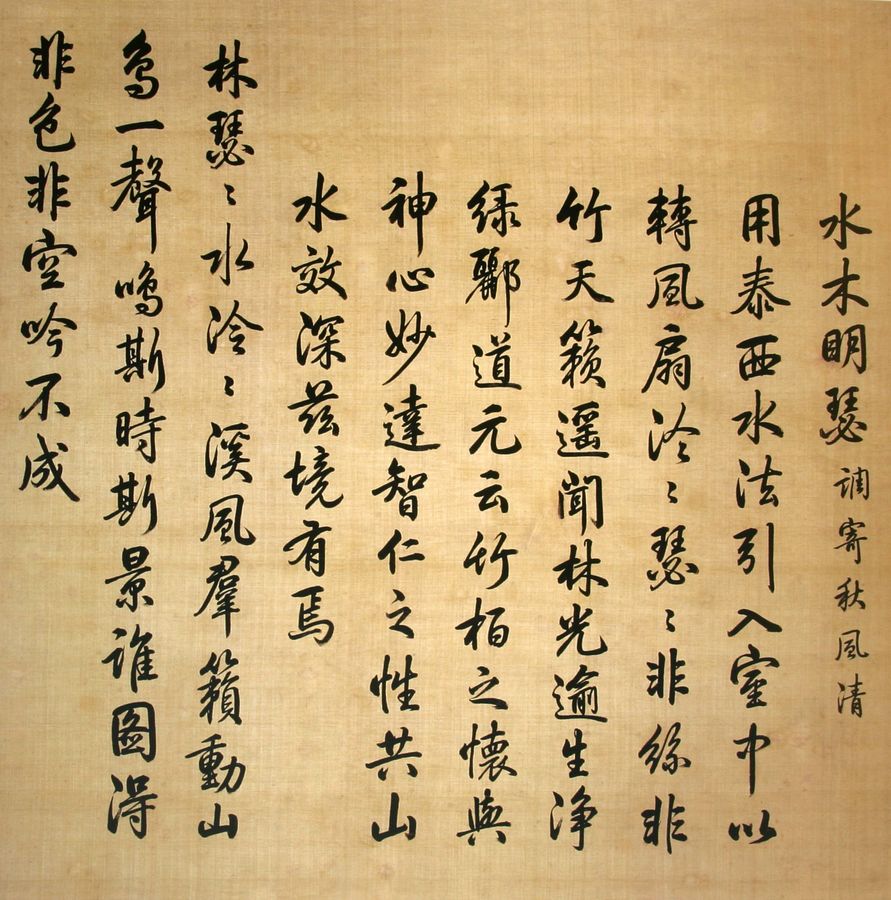 水木明瑟 調寄秋風清
用泰西水法引入室中以
轉風扇泠〻瑟〻非絲非
竹天籟遥聞林光逾生净
緑酈道元云竹柏之懷與
神心妙達智仁之性共山
水效深茲境有焉
林瑟〻水泠〻溪風羣籟動山
鳥一聲鳴斯時斯景誰圖得
非色非空吟不成